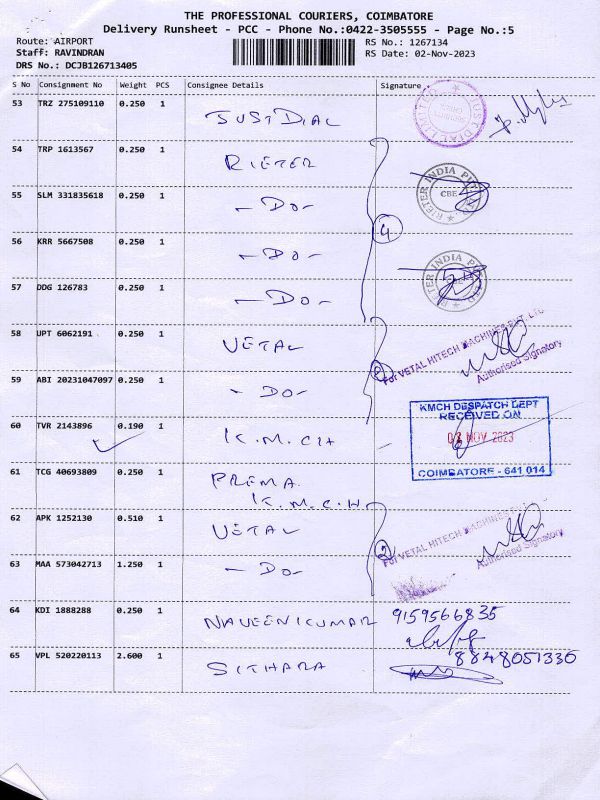 THE PROFESSIONAL COURIERS, COIMBATORE
Delivery Runsheet - PCC - Phone No.:0422-3505555 - Page No.:5
Route: AIRPORT RS No.: 1267134
Staff: RAVINDRAN RS Date: 02-Nov-2023
DRS No.: DCJB126713405
S No Consignment No Weight PCS Consignee Details Signature
53 TRZ 275109110 0.250 1 JUSTDIAL
54 TRP 1613567 0.250 1 RIETER
RIETER INDIA
CBE
55 SLM 331835618 0.250 1 - DO -
4
56 KRR 5667508 0.250 1 - DO -
RIETER INDIA
57 DDG 126783 0.250 1 - DO -
58 UPT 6062191 0.250 1 VETAL
For VETAL HITECH MACHINES PVT. LTD
Authorised Signatory
59 ABI 20231047097 0.250 1 - DO -
60 TVR 2143896 0.190 1 K.M.CH
KMCH DESPATCH DEPT
RECEIVED ON
02 NOV 2023
COIMBATORE - 641 014
61 TCG 40693809 0.250 1 PREMA
K.M.C.H
62 APK 1252130 0.510 1 VETAL
2
For VETAL HITECH MACHINES
Authorised Signatory
63 MAA 573042713 1.250 1 - DO -
64 KDI 1888288 0.250 1 NAVEENKUMAR 9159566835
65 VPL 520220113 2.600 1 SITHARA 8848051330